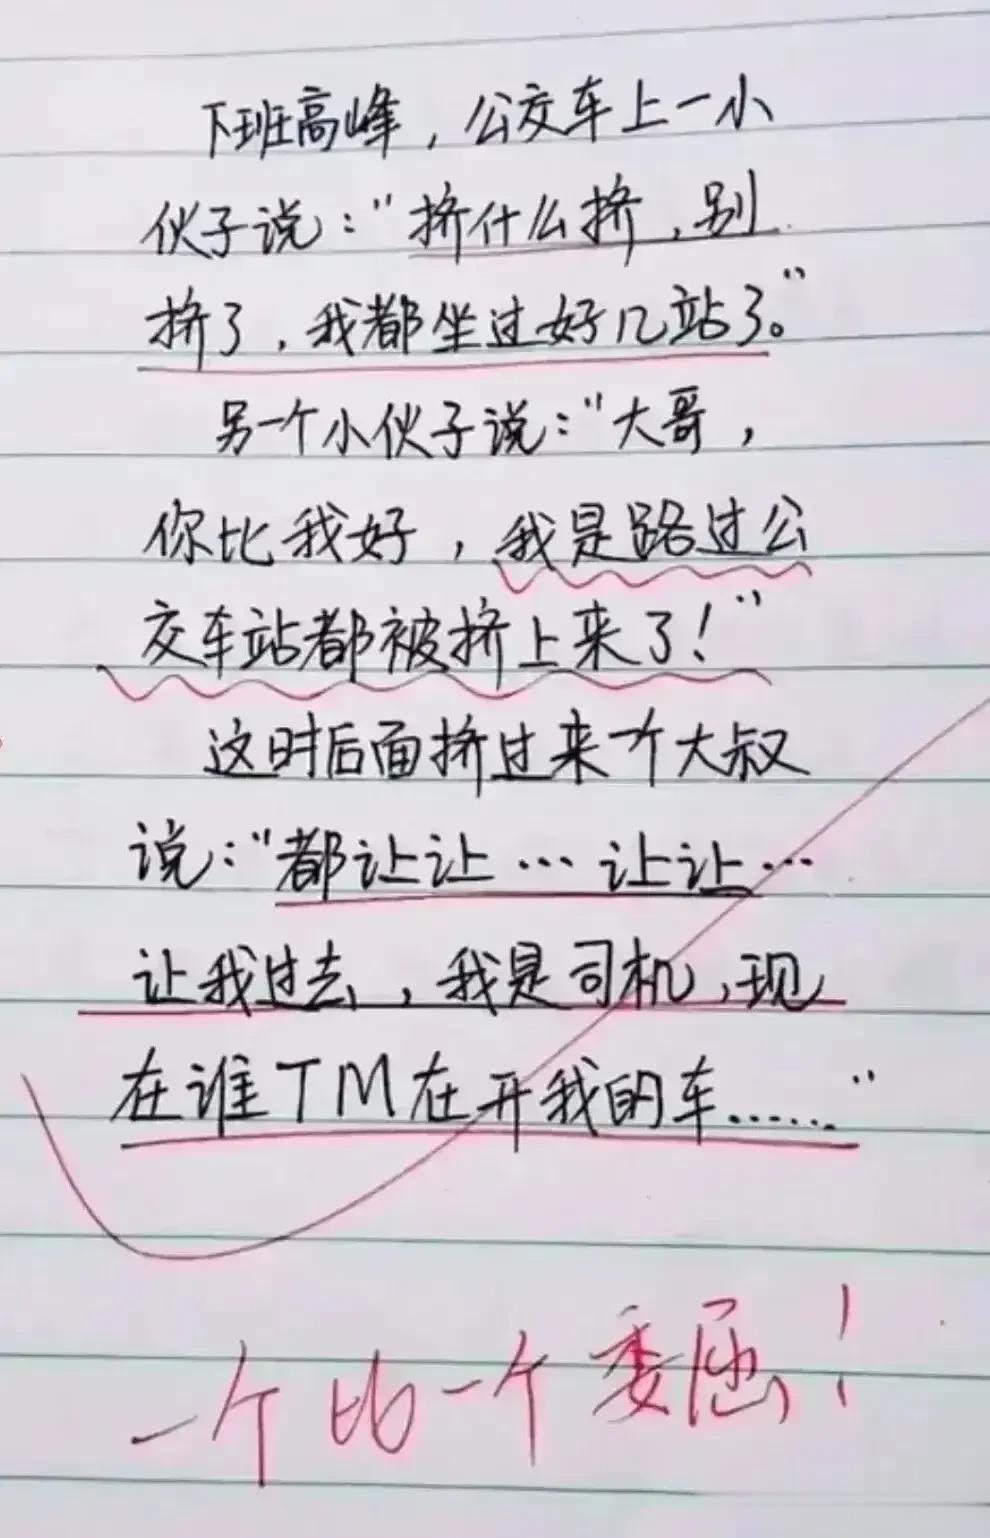 下班高峰，公交车上一小
伙子说："挤什么挤，别
挤了，我都坐过好几站了。"
另一个小伙子说："大哥，
你比我好，我是路过公
交车站都被挤上来了！"
这时后面挤过来个大叔
说："都让让…让让…
让我过去，我是司机，现
在谁TM在开我的车……"
一个比一个委屈！